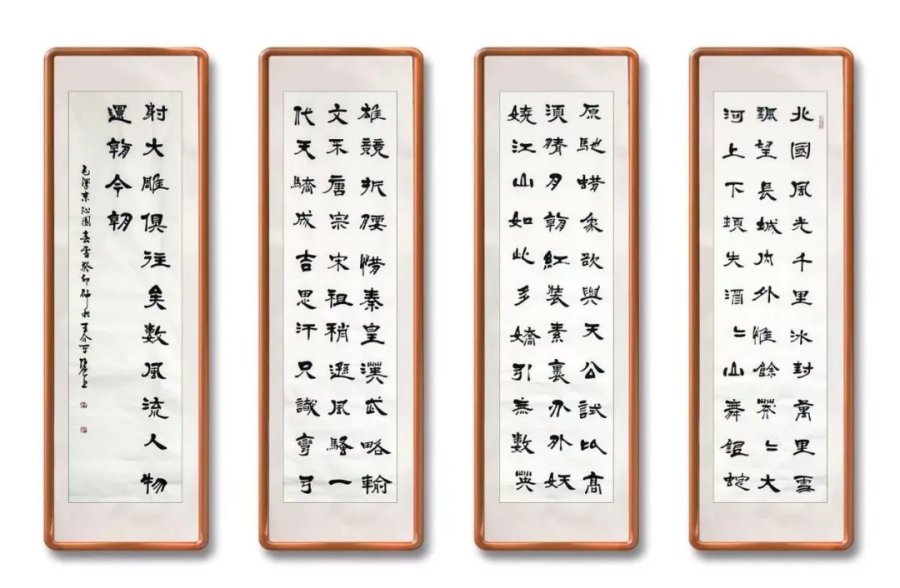 北國風光千里冰封萬里雪
飄望長城內外惟餘莽〻大
河上下頓失滔〻山舞銀蛇
原馳蜡象欲與天公試比高
須晴日看紅裝素裹分外妖
嬈江山如此多嬌引無數英
雄競折腰惜秦皇漢武略輸
文采唐宗宋祖稍遜風騷一
代天驕成吉思汗只識彎弓
射大雕俱往矣數風流人物
還看今朝
毛澤東沁園春雪癸卯仲秋